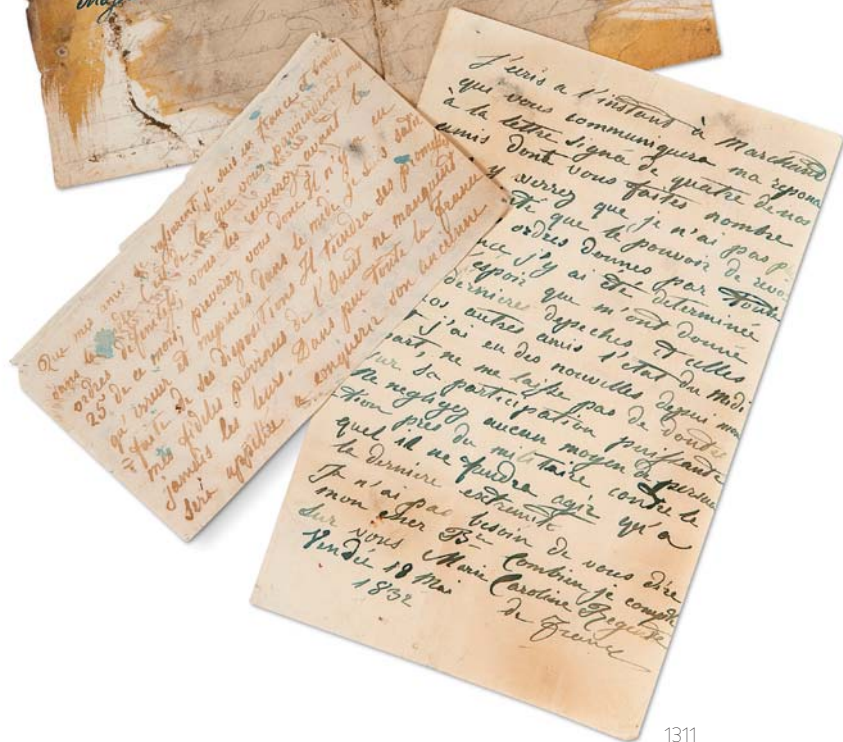 Que mes amis se rassurent, je suis en france et bientôt
dans la Vendée c'est de la que vous parviendront mes
ordres définitifs vous les recevrez avant le
25 de ce mois, preparez vous donc. Il n'y a eu
qu'erreur et meprises dans le midi je suis satis
faite de ses dispositions Il tiendra ses promesses
mes fideles provinces de l'Ouest ne manquent
jamais les leurs. Dans peu toute la France
sera appelée a conquerir son ancienne
J'ecris a l'instant à Marchand
qui vous communiquera ma repons
à la lettre signé de quatre de nos
amis dont vous faites nombre
y verrez que je n'ai pas p
que le pouvoir de revo
ordres donnés par toute
j'y ai été determinée
espoir que m'ont donné
dernieres depeches et celles
os autres amis l'etat du midi
j'ai eu des nouvelles depuis mon
art, ne me laisse pas de doute
sur sa participation puissante
Ne negligez aucun moyen de persua
tion près du militaire contre le
quel il ne faudra agir qu'a
la derniere extremité
Je n'ai pas besoin de vous dire
mon cher Bn combien je compte
sur vous Marie Caroline Regente
de France
Vendée 18 Mai
1832
1311